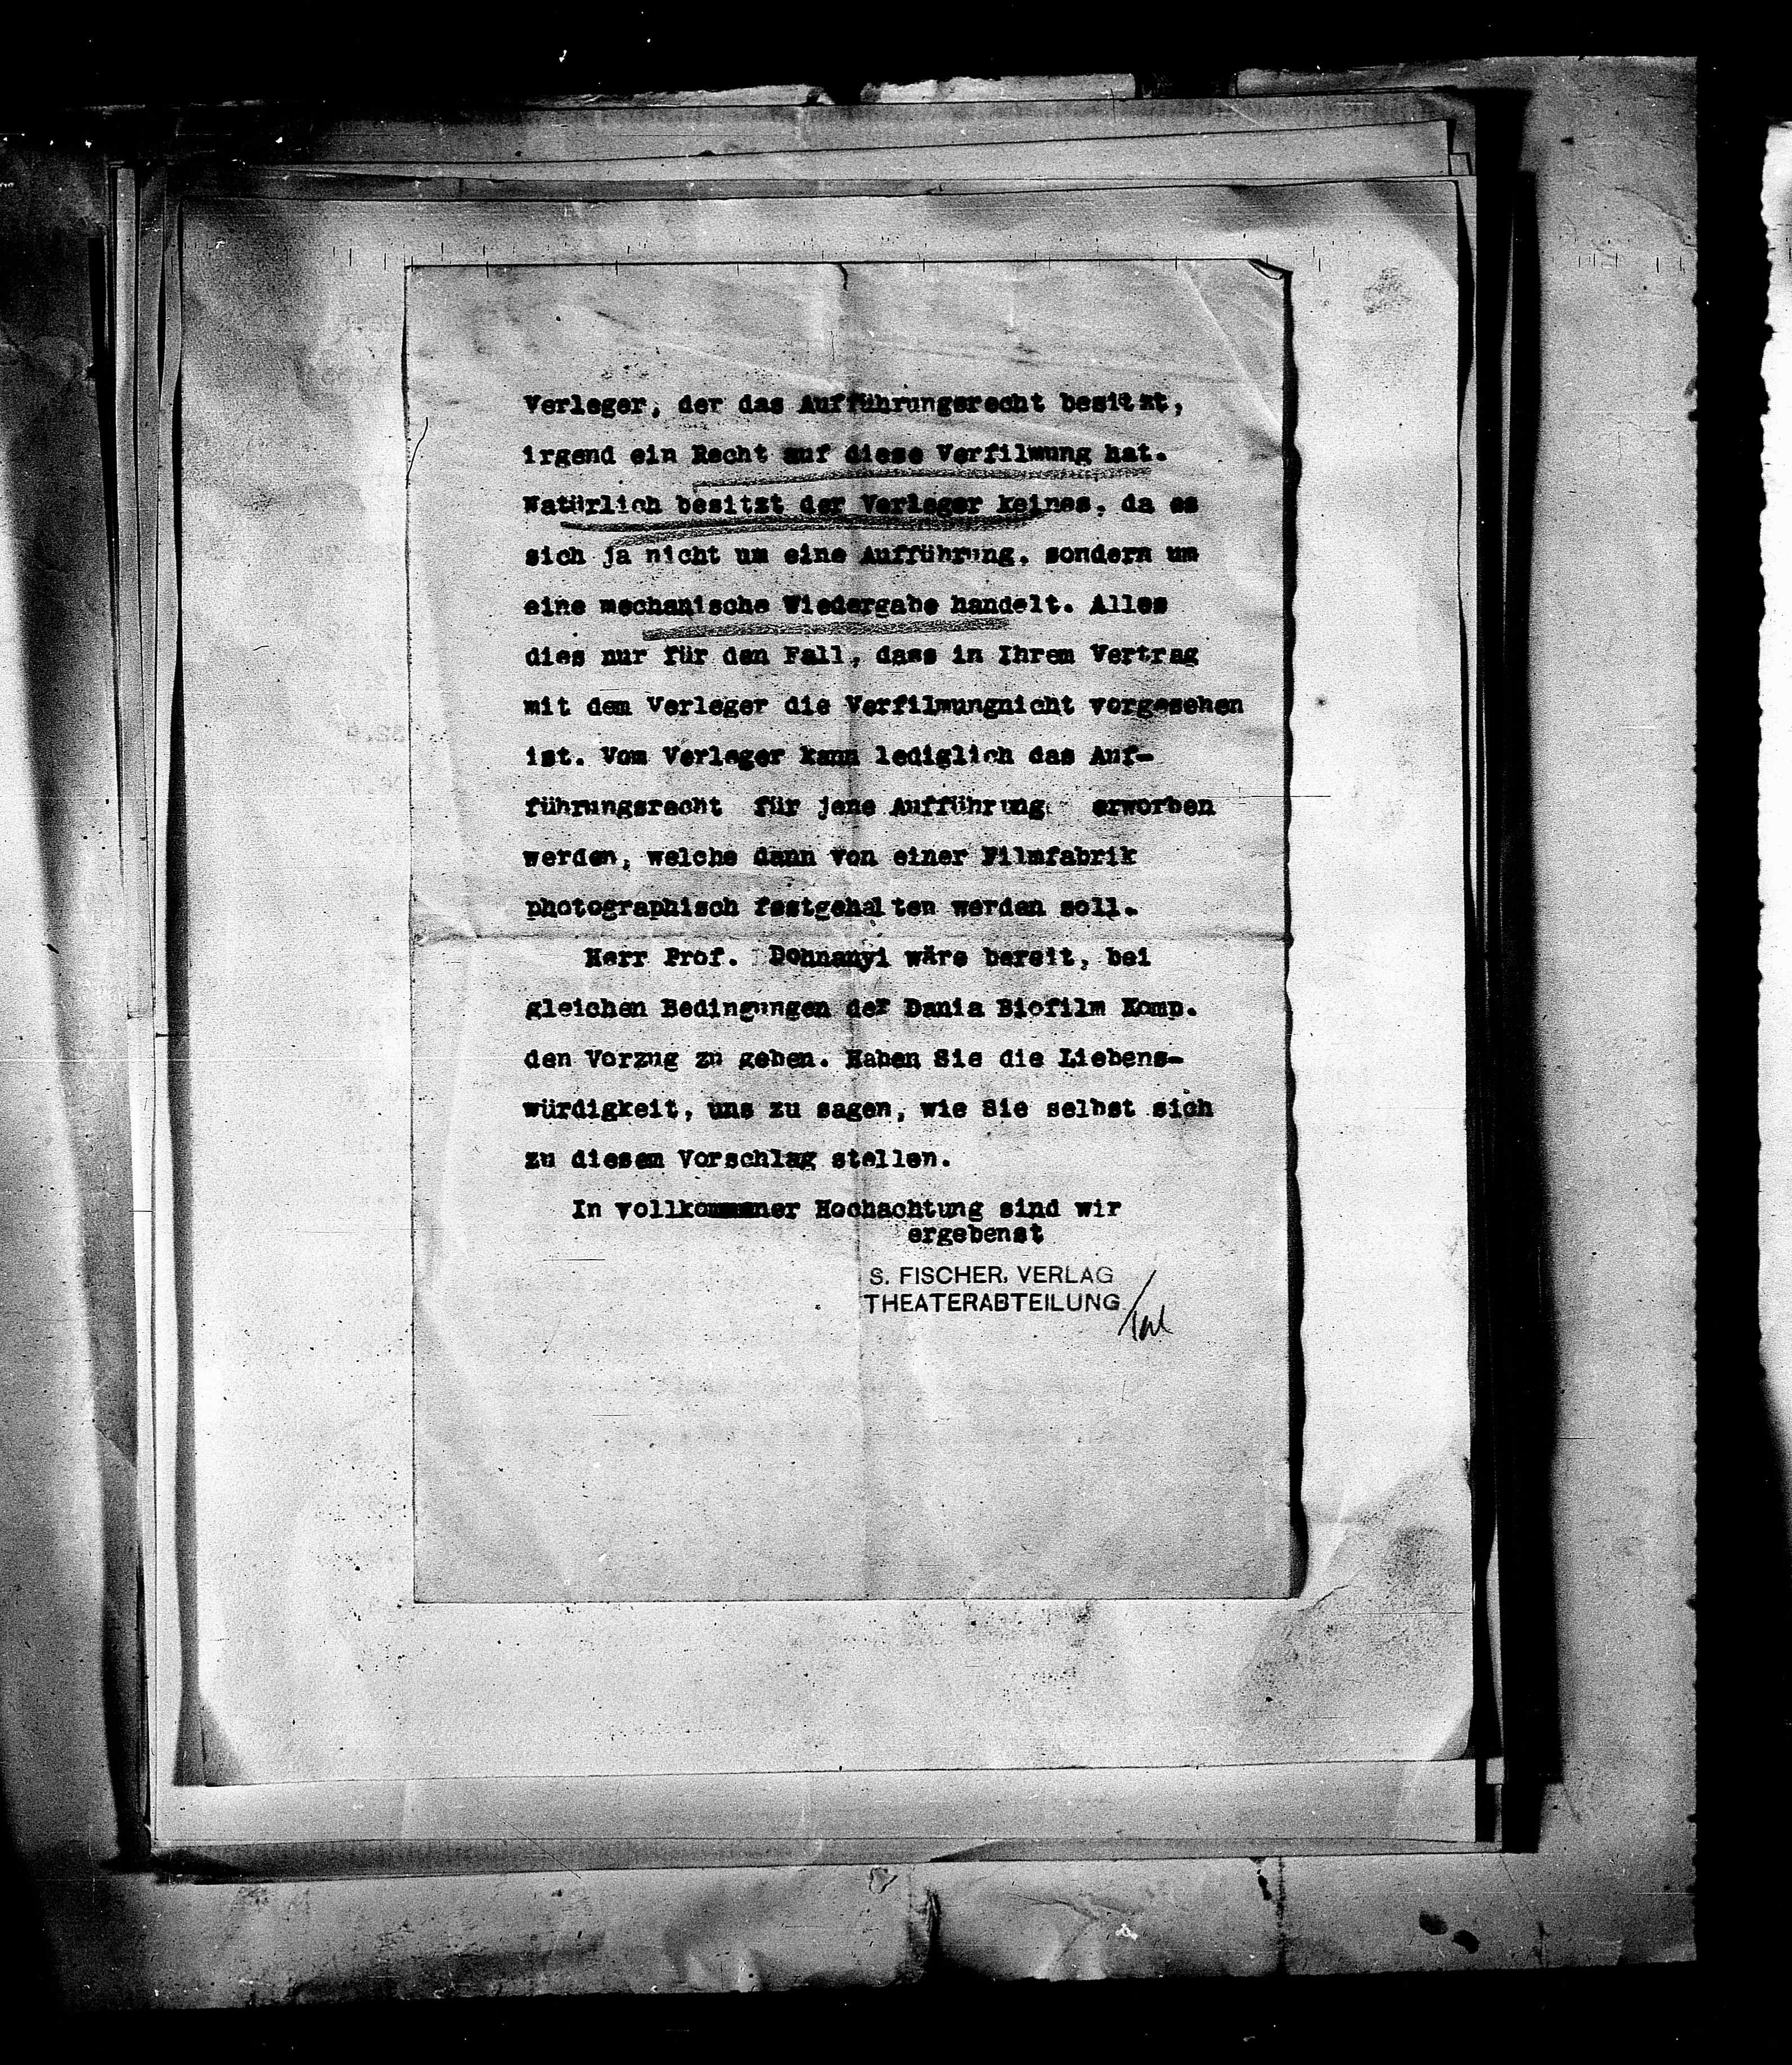 Verleger, der das Aufführungsrecht besitzt,
irgend ein Recht auf diese Verfilmung hat.
Natürlich besitzt der Verleger keines, da es
sich ja nicht um eine Aufführung, sondern um
eine mechanische Wiedergabe handelt. Alles
dies nur für den Fall, dass in Ihrem Vertrag
mit dem Verleger die Verfilmungnicht vorgesehen
ist. Vom Verleger kann lediglich das Auf-
führungsrecht für jene Aufführung erworben
werden, welche dann von einer Filmfabrik
photographisch festgehalten werden soll.
Herr Prof. Dohnanyi wäre bereit, bei
gleichen Bedingungen der Dania Biofilm Komp.
den Vorzug zu geben. Haben Sie die Liebens-
würdigkeit, uns zu sagen, wie Sie selbst sich
zu diesem Vorschlag stellen.
In vollkommener Hochachtung sind wir
ergebenst
S. FISCHER, VERLAG
THEATERABTEILUNG